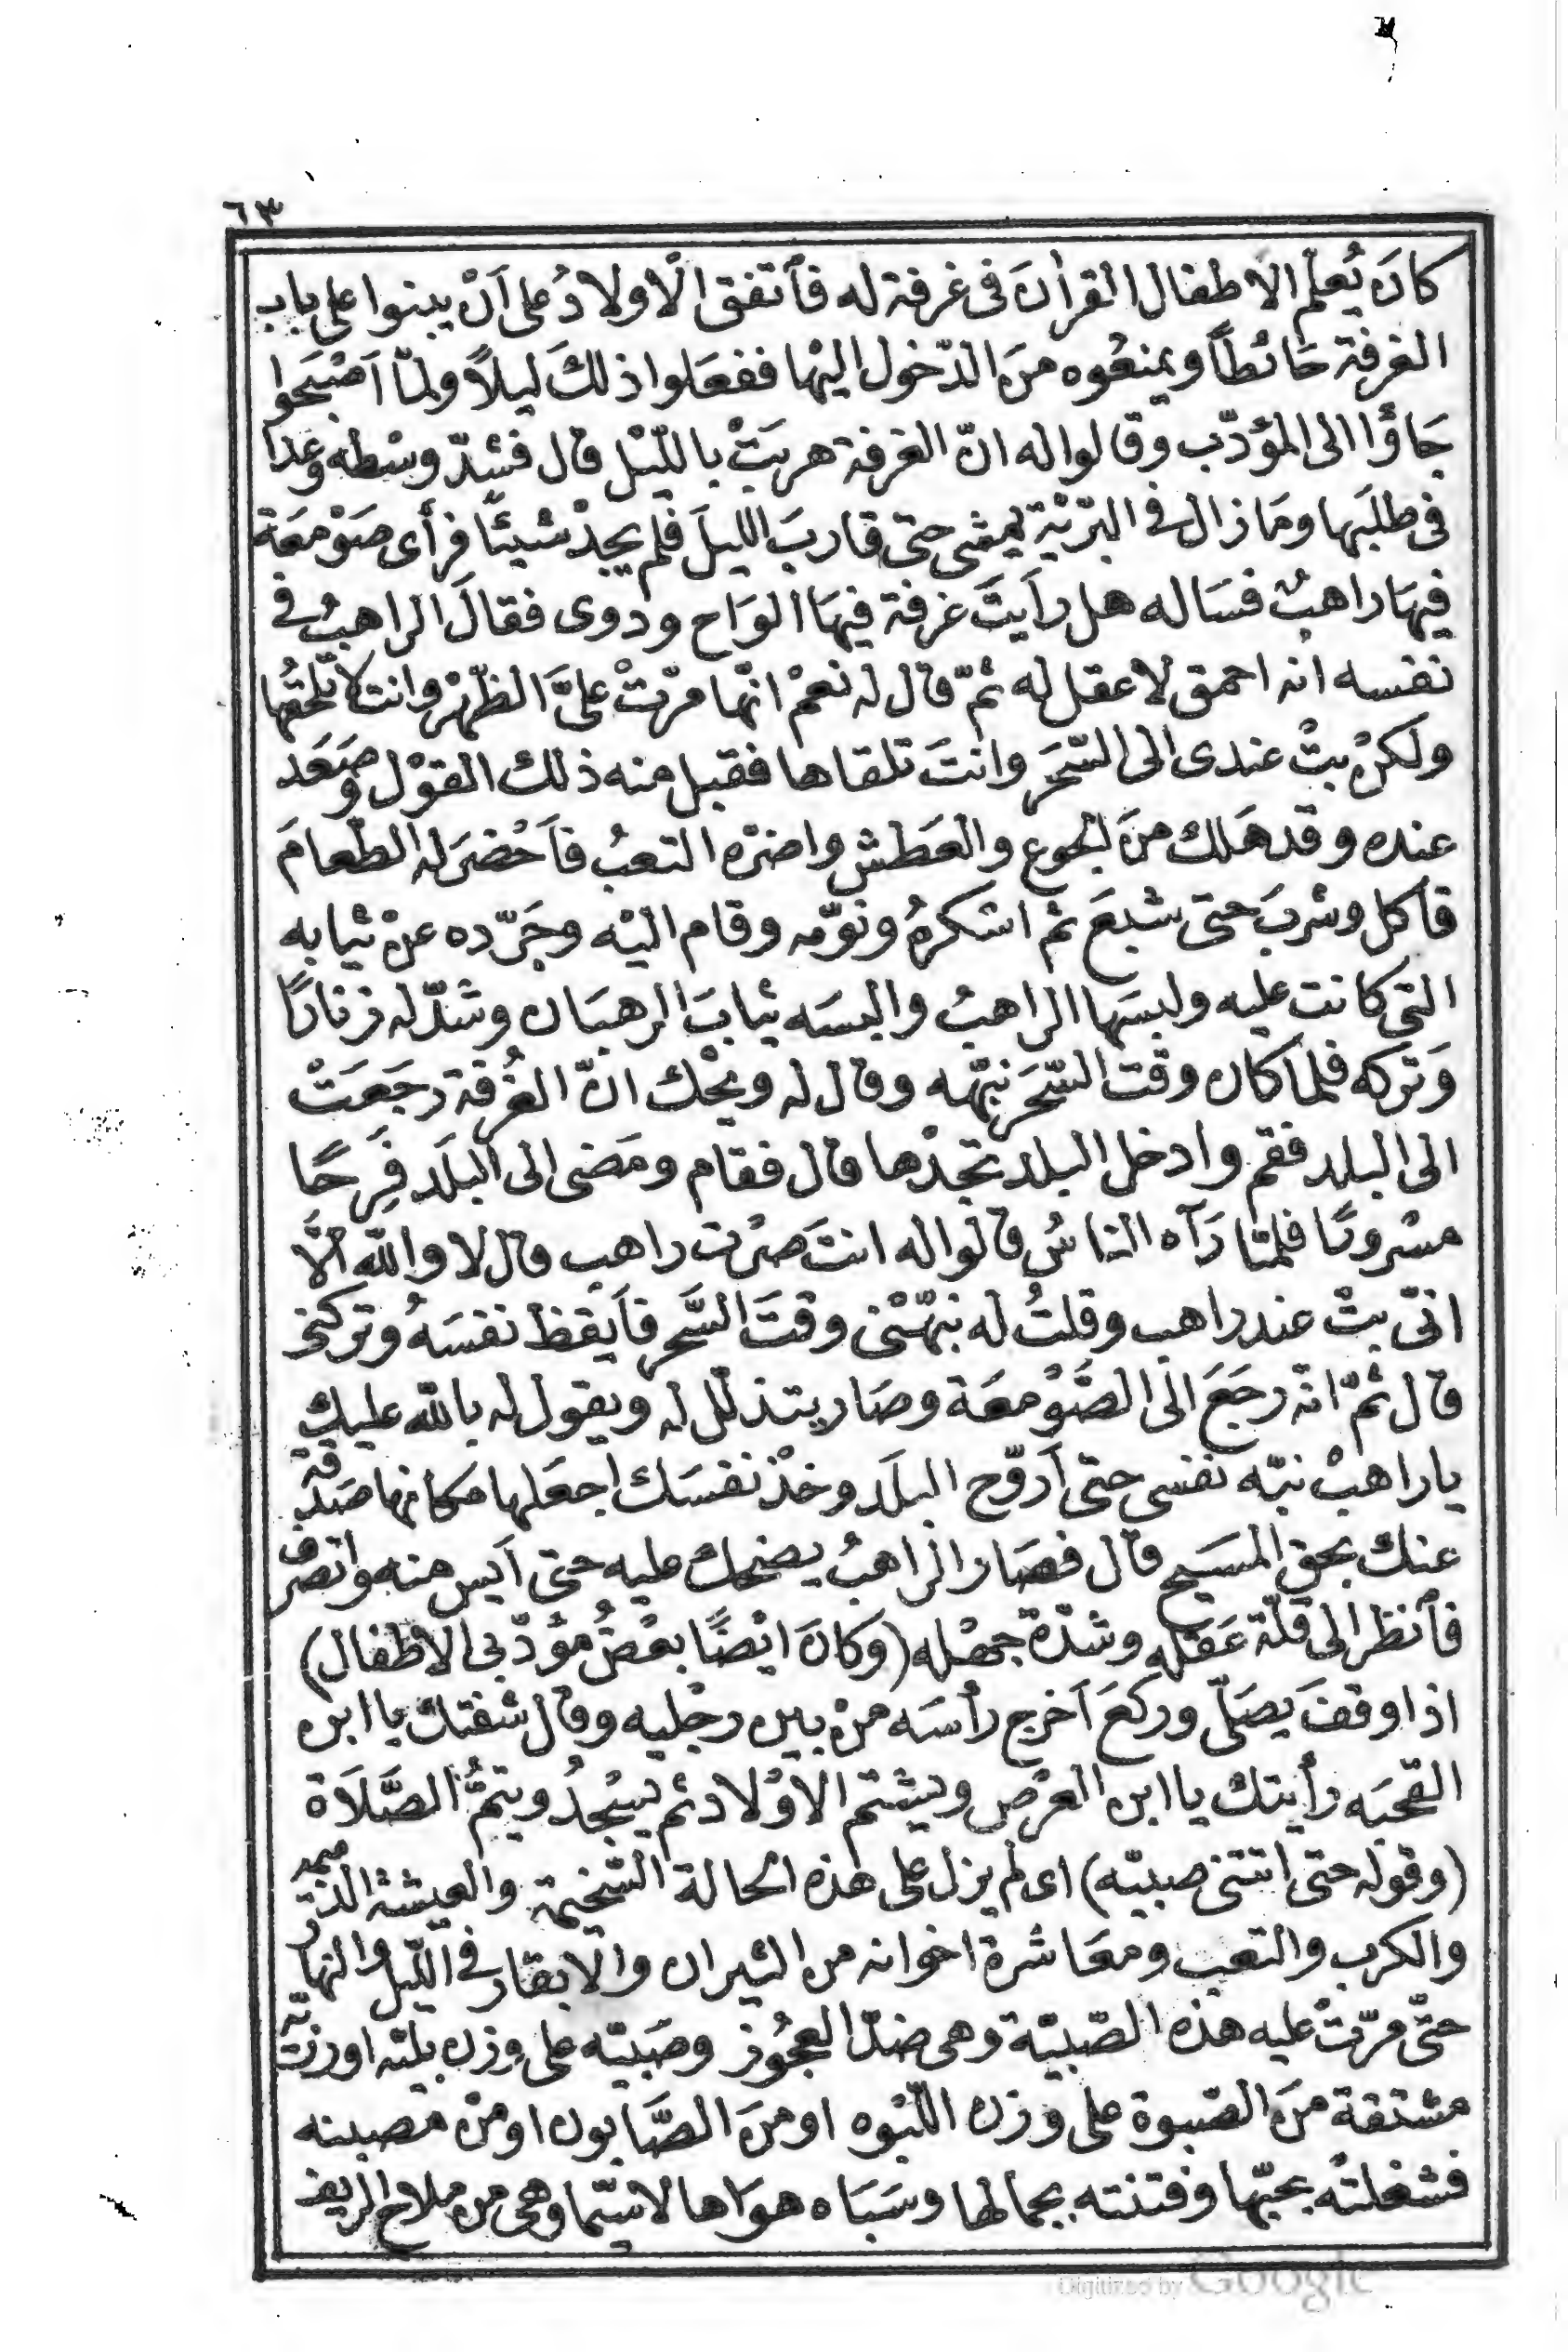 ٦٣
كانَ يُعلّم الاطفال القرانَ فى غرفة له فأتفق الاولادُ على اَنْ يبنوا على باب
الغرفة حَائطاً ويمنعُوه منَ الدّخول اليْها ففعَلوا ذلكَ ليلاً ولمّا اَصْبَحوا
جَاؤُا الى المؤدّب وقالوا له انّ الغرفة هربَتْ بالليْل قال فشدّ وسْطه وغدا
فى طلبَها ومَا زال فى البرّيّة يمشى حتى قاربَ الليلَ فلم يجدْ شيئًا فرأى صَوْمعَة
فيهَا راهبٌ فسَاله هل رَاَيتَ غرفة فيهَا الوَاح ودوى فقالَ الراهبُ فى
نفسه انه احمق لا عقل له ثمّ قال له نعمْ انّها مرّتْ علىَّ الظّهْر وانت لا تلحَقُها
ولكنْ بتْ عندى الى السّحَر وانتَ تلقاها فقبل منه ذلك القوْل وصَعَد
عنده وقد هَلك منَ الجوع والعَطش واضرّه التعبُ فاَحْضرَ له الطّعامَ
فاكل وشربَ حتى شبعَ ثم اسْكرهُ ونوّمه وقام اليْه وجَرّده عنْ ثيابه
التى كانت عليه ولبسَها الراهبُ والبسَه ثيابَ الرهبَان وشدّ له زنارًا
وَتركه فلما كان وقت السّحَر نبّهه وقال له ويْحك انّ الغُرفة رجَعَتْ
الى البلد فقم وادخل البلد تجدْها قال فقام ومَضى الى البلَد فِرِحًا
مسْرورًا فلمّا رَآه الناسُ قالوا له انتَ صرْت راهب قال لا والله اَلَّا
انّى بتّ عند راهب وقلتُ له نبّهْنى وقتَ السَّحر فاَيقظ نفسَهُ وتركنى
قال ثمّ انّه رجَعَ الَى الصَّوْمعَة وصَار يتذلّل له ويقول له بالله عليك
يا راهبْ نبّه نفسى حتى اَروّح البلَد وخذْ نفسَك اجعَلها مكانها صَدقة
عنك بحق المسَيح قال فصَار الراهبُ يضحك عليه حتى اَيس منه وانصرف
فأنظر الى قلّة عَقله وشدّة جهْله (وكانَ ايْضًا بعْضُ مؤدّبى الاطفال)
اذا وقفَ يصَلّى وركعَ اَخرج رأسَه منْ بين رجْليه وقال شفتك يا ابن
القحبَه رأيتك يا ابن العرْص ويشتم الاوْلاد ثم يسْجدُ ويتمُّ الصَّلَاة
(وقوله حتى اتتنى صبيّه) اى لم يزل على هذه الحالة السّخيمة والعيشة الذميمه
والكرب والتعب ومعَاشرة اخوانه من الثيران والابقار فى الليل والنهار
حتّى مرّتْ عليه هذه الصّبيّة وهى ضدّ العجُوز وصَبيّه على وزن بليّه او رزيّه
مشتقة منَ الصّبوة على وزن اللّبْوه او منَ الصَّابون او منْ مصبنه
فشغلتْه بحبّها وفتنته بجمالها وسَبَاه هوَاها لاسيّما وهى من ملاح الريف
Digitized by Google